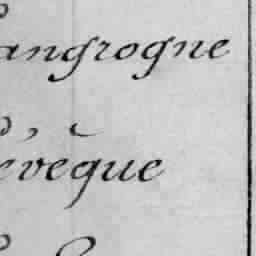 angrogne
evêque